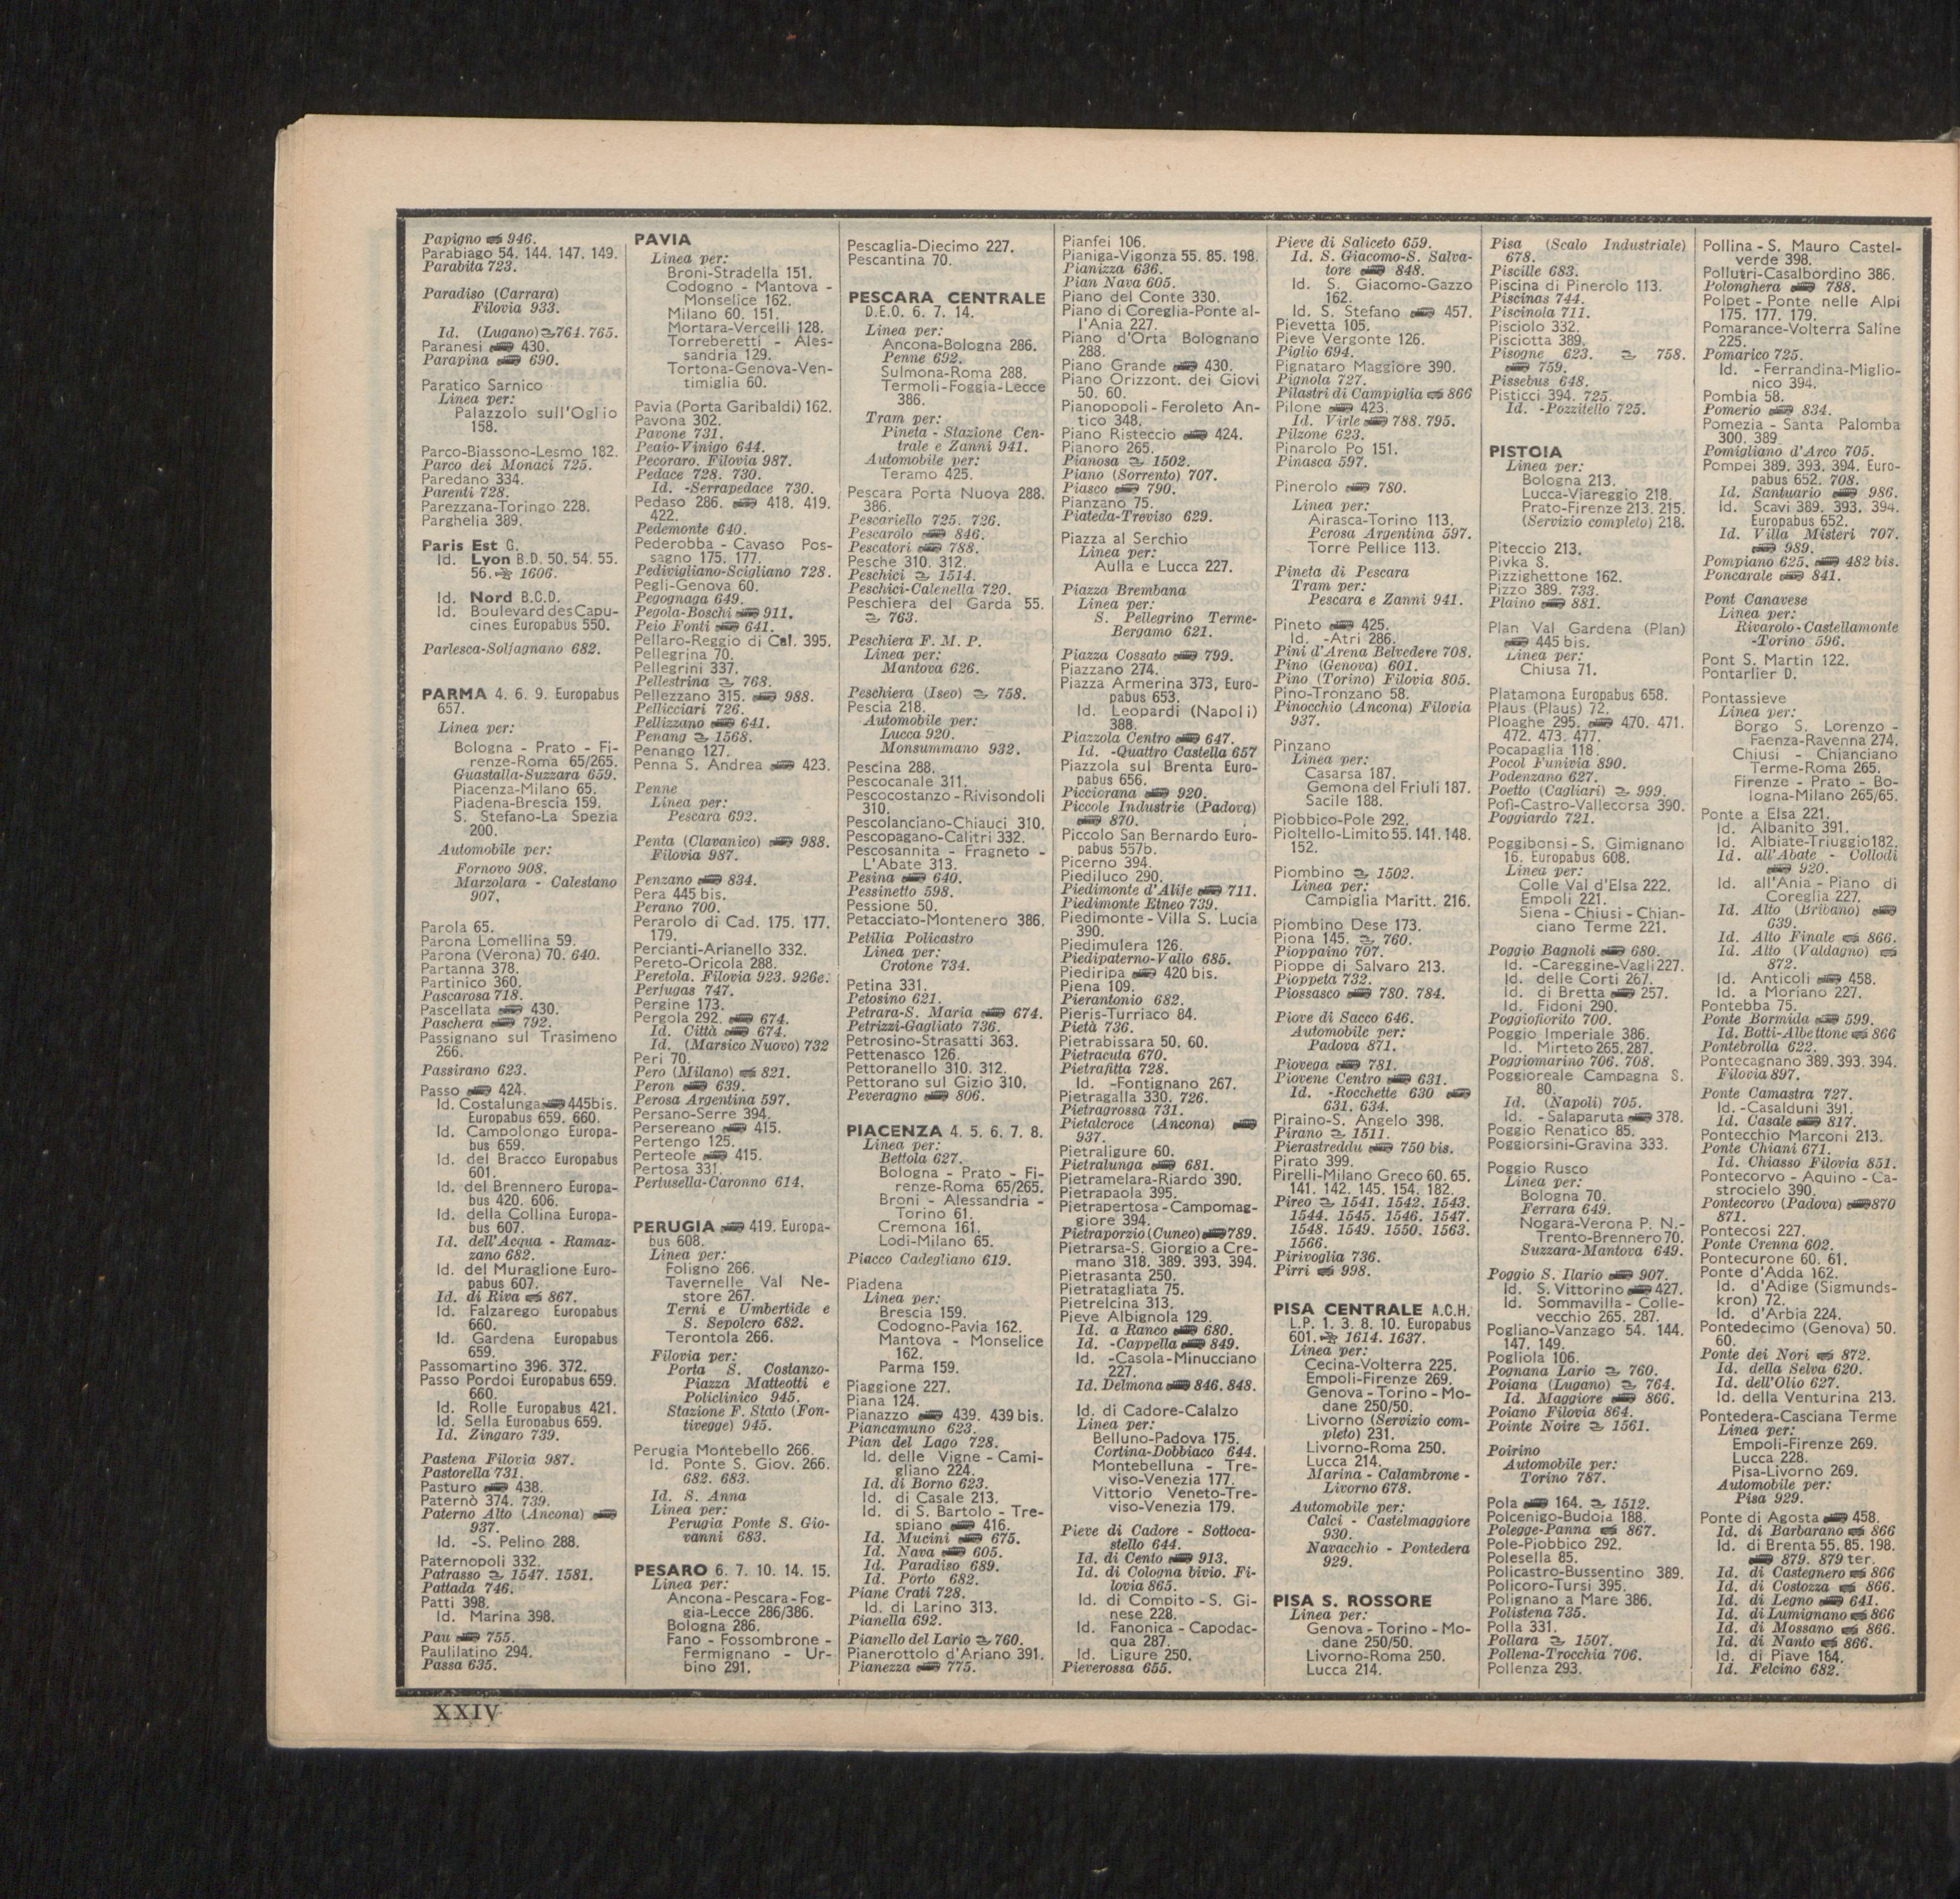 Papigno 946.
Parabiago 54. 144. 147. 149.
Parabita 723.
Paradiso (Carrara)
Filovia 933.
Id. (Lugano) 764. 765.
Paranesi 430.
Parapina 690.
Paratico Sarnico
Linea per:
Palazzolo sull'Oglio
158.
Parco-Biassono-Lesmo 182.
Parco dei Monaci 725.
Paredano 334.
Parenti 728.
Parezzana-Toringo 228.
Parghelia 389.
Paris Est G.
Id. Lyon B.D. 50. 54. 55.
56. 1606.
Id. Nord B.C.D.
Id. Boulevard des Capu-
cines Europabus 550.
Parlesca-Solfagnano 682.
PARMA 4. 6. 9. Europabus
657.
Linea per:
Bologna - Prato - Fi-
renze-Roma 65/265.
Guastalla-Suzzara 659.
Piacenza-Milano 65.
Piadena-Brescia 159.
S. Stefano-La Spezia
200.
Automobile per:
Fornovo 908.
Marzolara - Calestano
907.
Parola 65.
Parona Lomellina 59.
Parona (Verona) 70. 640.
Partanna 378.
Partinico 360.
Pascarosa 718.
Pascellata 430.
Paschera 792.
Passignano sul Trasimeno
266.
Passirano 623.
Passo 424.
Id. Costalunga 445bis.
Europabus 659. 660.
Id. Campolongo Europa-
bus 659.
Id. del Bracco Europabus
601.
Id. del Brennero Europa-
bus 420. 606.
Id. della Collina Europa-
bus 607.
Id. dell'Acqua - Ramaz-
zano 682.
Id. del Muraglione Euro-
pabus 607.
Id. di Riva 867.
Id. Falzarego Europabus
660.
Id. Gardena Europabus
659.
Passomartino 396. 372.
Passo Pordoi Europabus 659.
660.
Id. Rolle Europabus 421.
Id. Sella Europabus 659.
Id. Zingaro 739.
Pastena Filovia 987.
Pastorella 731.
Pasturo 438.
Paternò 374. 739.
Paterno Alto (Ancona)
937.
Id. -S. Pelino 288.
Paternopoli 332.
Patrasso 1547. 1581.
Pattada 746.
Patti 398.
Id. Marina 398.
Pau 755.
Paulilatino 294.
Passa 635.
PAVIA
Linea per:
Broni-Stradella 151.
Codogno - Mantova -
Monselice 162.
Milano 60. 151.
Mortara-Vercelli 128.
Torreberetti - Ales-
sandria 129.
Tortona-Genova-Ven-
timiglia 60.
Pavia (Porta Garibaldi) 162.
Pavona 302.
Pavone 731.
Peaio-Vinigo 644.
Pecoraro. Filovia 987.
Pedace 728. 730.
Id. -Serrapedace 730.
Pedaso 286. 418. 419.
422.
Pedemonte 640.
Pederobba - Cavaso Pos-
sagno 175. 177.
Pedivigliano-Scigliano 728.
Pegli-Genova 60.
Pegognaga 649.
Pegola-Boschi 911.
Peio Fonti 641.
Pellaro-Reggio di Cal. 395.
Pellegrina 70.
Pellegrini 337.
Pellestrina 768.
Pellezzano 315. 988.
Pellicciari 726.
Pellizzano 641.
Penang 1568.
Penango 127.
Penna S. Andrea 423.
Penne
Linea per:
Pescara 692.
Penta (Clavanico) 988.
Filovia 987.
Penzano 834.
Pera 445 bis.
Perano 700.
Perarolo di Cad. 175. 177.
179.
Percianti-Arianello 332.
Pereto-Oricola 288.
Peretola. Filovia 923. 926e.
Perfugas 747.
Pergine 173.
Pergola 292. 674.
Id. Città 674.
Id. (Marsico Nuovo) 732
Peri 70.
Pero (Milano) 821.
Peron 639.
Perosa Argentina 597.
Persano-Serre 394.
Persereano 415.
Pertengo 125.
Perteole 415.
Pertosa 331.
Pertusella-Caronno 614.
PERUGIA 419. Europa-
bus 608.
Linea per:
Foligno 266.
Tavernelle Val Ne-
store 267.
Terni e Umbertide e
S. Sepolcro 682.
Terontola 266.
Filovia per:
Porta S. Costanzo-
Piazza Matteotti e
Policlinico 945.
Stazione F. Stato (Fon-
tivegge) 945.
Perugia Montebello 266.
Id. Ponte S. Giov. 266.
682. 683.
Id. S. Anna
Linea per:
Perugia Ponte S. Gio-
vanni 683.
PESARO 6. 7. 10. 14. 15.
Linea per:
Ancona-Pescara-Fog-
gia-Lecce 286/386.
Bologna 286.
Fano - Fossombrone -
Fermignano - Ur-
bino 291.
Pescaglia-Diecimo 227.
Pescantina 70.
PESCARA CENTRALE
D.E.O. 6. 7. 14.
Linea per:
Ancona-Bologna 286.
Penne 692.
Sulmona-Roma 288.
Termoli-Foggia-Lecce
386.
Tram per:
Pineta - Stazione Cen-
trale e Zanni 941.
Automobile per:
Teramo 425.
Pescara Porta Nuova 288.
386.
Pescariello 725. 726.
Pescarolo 846.
Pescatori 788.
Pesche 310. 312.
Peschici 1514.
Peschici-Calenella 720.
Peschiera del Garda 55.
763.
Peschiera F. M. P.
Linea per:
Mantova 626.
Peschiera (Iseo) 758.
Pescia 218.
Automobile per:
Lucca 920.
Monsummano 932.
Pescina 288.
Pescocanale 311.
Pescocostanzo-Rivisondoli
310.
Pescolanciano-Chiauci 310.
Pescopagano-Calitri 332.
Pescosannita - Fragneto -
L'Abate 313.
Pesina 640.
Pessinetto 598.
Pessione 50.
Petacciato-Montenero 386.
Petilia Policastro
Linea per:
Crotone 734.
Petina 331.
Petosino 621.
Petrara-S. Maria 674.
Petrizzi-Gagliato 736.
Petrosino-Strasatti 363.
Pettenasco 126.
Pettoranello 310. 312.
Pettorano sul Gizio 310.
Peveragno 806.
PIACENZA 4. 5. 6. 7. 8.
Linea per:
Bettola 627.
Bologna - Prato - Fi-
renze-Roma 65/265.
Broni - Alessandria -
Torino 61.
Cremona 161.
Lodi-Milano 65.
Piacco Cadegliano 619.
Piadena
Linea per:
Brescia 159.
Codogno-Pavia 162.
Mantova - Monselice
162.
Parma 159.
Piaggione 227.
Piana 124.
Pianazzo 439. 439 bis.
Piancamuno 623.
Pian del Lago 728.
Id. delle Vigne - Cami-
gliano 224.
Id. di Borno 623.
Id. di Casale 213.
Id. di S. Bartolo - Tre-
spiano 416.
Id. Mucini 675.
Id. Nava 605.
Id. Paradiso 689.
Id. Porto 682.
Piane Crati 728.
Id. di Larino 313.
Pianella 692.
Pianello del Lario 760.
Pianerottolo d'Ariano 391.
Pianezza 775.
Pianfei 106.
Pianiga-Vigonza 55. 85. 198.
Pianizza 636.
Pian Nava 605.
Piano del Conte 330.
Piano di Coreglia-Ponte al-
l'Ania 227.
Piano d'Orta Bolognano
288.
Piano Grande 430.
Piano Orizzont. dei Giovi
50. 60.
Pianopopoli - Feroleto An-
tico 348.
Piano Risteccio 424.
Pianoro 265.
Pianosa 1502.
Piano (Sorrento) 707.
Piasco 790.
Pianzano 75.
Piateda-Treviso 629.
Piazza al Serchio
Linea per:
Aulla e Lucca 227.
Piazza Brembana
Linea per:
S. Pellegrino Terme-
Bergamo 621.
Piazza Cossato 799.
Piazzano 274.
Piazza Armerina 373, Euro-
pabus 653.
Id. Leopardi (Napoli)
388.
Piazzola Centro 647.
Id. -Quattro Castella 657
Piazzola sul Brenta Euro-
pabus 656.
Picciorana 920.
Piccole Industrie (Padova)
870.
Piccolo San Bernardo Euro-
pabus 557b.
Picerno 394.
Piediluco 290.
Piedimonte d'Alife 711.
Piedimonte Etneo 739.
Piedimonte - Villa S. Lucia
390.
Piedimulera 126.
Piedipaterno-Vallo 685.
Piediripa 420 bis.
Piena 109.
Pierantonio 682.
Pieris-Turriaco 84.
Pietà 736.
Pietrabissara 50. 60.
Pietracuta 670.
Pietrafitta 728.
Id. -Fontignano 267.
Pietragalla 330. 726.
Pietragrossa 731.
Pietalcroce (Ancona)
937.
Pietraligure 60.
Pietralunga 681.
Pietramelara-Riardo 390.
Pietrapaola 395.
Pietrapertosa-Campomag-
giore 394.
Pietraporzio (Cuneo) 789.
Pietrarsa-S. Giorgio a Cre-
mano 318. 389. 393. 394.
Pietrasanta 250.
Pietratagliata 75.
Pietrelcina 313.
Pieve Albignola 129.
Id. a Ranco 680.
Id. -Cappella 849.
Id. -Casola-Minucciano
227.
Id. Delmona 846. 848.
Id. di Cadore-Calalzo
Linea per:
Belluno-Padova 175.
Cortina-Dobbiaco 644.
Montebelluna - Tre-
viso-Venezia 177.
Vittorio Veneto-Tre-
viso-Venezia 179.
Pieve di Cadore - Sottoca-
stello 644.
Id. di Cento 913.
Id. di Cologna bivio. Fi-
lovia 865.
Id. di Compito - S. Gi-
nese 228.
Id. Fanonica - Capodac-
qua 287.
Id. Ligure 250.
Pieverossa 655.
Pieve di Saliceto 659.
Id. S. Giacomo-S. Salva-
tore 848.
Id. S. Giacomo-Gazzo
162.
Id. S. Stefano 457.
Pievetta 105.
Pieve Vergonte 126.
Piglio 694.
Pignataro Maggiore 390.
Pignola 727.
Pilastri di Campiglia 866
Pilone 423.
Id. Virle 788. 795.
Pilzone 623.
Pinarolo Po 151.
Pinasca 597.
Pinerolo 780.
Linea per:
Airasca-Torino 113.
Perosa Argentina 597.
Torre Pellice 113.
Pineta di Pescara
Tram per:
Pescara e Zanni 941.
Pineto 425.
Id. -Atri 286.
Pini d'Arena Belvedere 708.
Pino (Genova) 601.
Pino (Torino) Filovia 805.
Pino-Tronzano 58.
Pinocchio (Ancona) Filovia
937.
Pinzano
Linea per:
Casarsa 187.
Gemona del Friuli 187.
Sacile 188.
Piobbico-Pole 292.
Pioltello-Limito 55. 141. 148.
152.
Piombino 1502.
Linea per:
Campiglia Maritt. 216.
Piombino Dese 173.
Piona 145. 760.
Pioppaino 707.
Pioppe di Salvaro 213.
Pioppeta 732.
Piossasco 780. 784.
Piove di Sacco 646.
Automobile per:
Padova 871.
Piovega 781.
Piovene Centro 631.
Id. -Rocchette 630
631. 634.
Piraino-S. Angelo 398.
Pirano 1511.
Pierastreddu 750 bis.
Pirato 399.
Pirelli-Milano Greco 60. 65.
141. 142. 145. 154. 182.
Pireo 1541. 1542. 1543.
1544. 1545. 1546. 1547.
1548. 1549. 1550. 1563.
1566.
Pirivoglia 736.
Pirri 998.
PISA CENTRALE A.C.H.
L.P. 1. 3. 8. 10. Europabus
601. 1614. 1637.
Linea per:
Cecina-Volterra 225.
Empoli-Firenze 269.
Genova - Torino - Mo-
dane 250/50.
Livorno (Servizio com-
pleto) 231.
Livorno-Roma 250.
Lucca 214.
Marina - Calambrone -
Livorno 678.
Automobile per:
Calci - Castelmaggiore
930.
Navacchio - Pontedera
929.
PISA S. ROSSORE
Linea per:
Genova - Torino - Mo-
dane 250/50.
Livorno-Roma 250.
Lucca 214.
Pisa (Scalo Industriale)
678.
Piscille 683.
Piscina di Pinerolo 113.
Piscinas 744.
Piscinola 711.
Pisciolo 332.
Pisciotta 389.
Pisogne 623. 758.
759.
Pissebus 648.
Pisticci 394. 725.
Id. -Pozzitello 725.
PISTOIA
Linea per:
Bologna 213.
Lucca-Viareggio 218.
Prato-Firenze 213. 215.
(Servizio completo) 218.
Piteccio 213.
Pivka S.
Pizzighettone 162.
Pizzo 389. 733.
Plaino 881.
Plan Val Gardena (Plan)
445 bis.
Linea per:
Chiusa 71.
Platamona Europabus 658.
Plaus (Plaus) 72.
Ploaghe 295. 470. 471.
472. 473. 477.
Pocapaglia 118.
Pocol Funivia 890.
Podenzano 627.
Poetto (Cagliari) 999.
Pofi-Castro-Vallecorsa 390.
Poggiardo 721.
Poggibonsi - S. Gimignano
16. Europabus 608.
Linea per:
Colle Val d'Elsa 222.
Empoli 221.
Siena - Chiusi - Chian-
ciano Terme 221.
Poggio Bagnoli 680.
Id. -Careggine-Vagli 227.
Id. delle Corti 267.
Id. di Bretta 257.
Id. Fidoni 290.
Poggiofiorito 700.
Poggio Imperiale 386.
Id. Mirteto 265. 287.
Poggiomarino 706. 708.
Poggioreale Campagna S.
80.
Id. (Napoli) 705.
Id. -Salaparuta 378.
Poggio Renatico 85.
Poggiorsini-Gravina 333.
Poggio Rusco
Linea per:
Bologna 70.
Ferrara 649.
Nogara-Verona P. N.-
Trento-Brennero 70.
Suzzara-Mantova 649.
Poggio S. Ilario 907.
Id. S. Vittorino 427.
Id. Sommavilla - Colle-
vecchio 265. 287.
Pogliano-Vanzago 54. 144.
147. 149.
Pogliola 106.
Pognana Lario 760.
Poiana (Lugano) 764.
Id. Maggiore 866.
Poiano Filovia 864.
Pointe Noire 1561.
Poirino
Automobile per:
Torino 787.
Pola 164. 1512.
Polcenigo-Budoia 188.
Polegge-Panna 867.
Pole-Piobbico 292.
Polesella 85.
Policastro-Bussentino 389.
Policoro-Tursi 395.
Polignano a Mare 386.
Polistena 735.
Polla 331.
Pollara 1507.
Pollena-Trocchia 706.
Pollenza 293.
Pollina - S. Mauro Castel-
verde 398.
Pollutri-Casalbordino 386.
Polonghera 788.
Polpet - Ponte nelle Alpi
175. 177. 179.
Pomarance-Volterra Saline
225.
Pomarico 725.
Id. -Ferrandina-Miglio-
nico 394.
Pombia 58.
Pomerio 834.
Pomezia - Santa Palomba
300. 389.
Pomigliano d'Arco 705.
Pompei 389. 393. 394. Euro-
pabus 652. 708.
Id. Santuario 986.
Id. Scavi 389. 393. 394.
Europabus 652.
Id. Villa Misteri 707.
989.
Pompiano 625. 482 bis.
Poncarale 841.
Pont Canavese
Linea per:
Rivarolo-Castellamonte
-Torino 596.
Pont S. Martin 122.
Pontarlier D.
Pontassieve
Linea per:
Borgo S. Lorenzo -
Faenza-Ravenna 274.
Chiusi - Chianciano
Terme-Roma 265.
Firenze - Prato - Bo-
logna-Milano 265/65.
Ponte a Elsa 221.
Id. Albanito 391.
Id. Albiate-Triuggio 182.
Id. all'Abate - Collodi
920.
Id. all'Ania - Piano di
Coreglia 227.
Id. Alto (Bribano)
639.
Id. Alto Finale 866.
Id. Alto (Valdagno)
872.
Id. Anticoli 458.
Id. a Moriano 227.
Pontebba 75.
Ponte Bormida 599.
Id. Botti-Albettone 866
Pontebrolla 622.
Pontecagnano 389. 393. 394.
Filovia 897.
Ponte Camastra 727.
Id. -Casalduni 391.
Id. Casale 817.
Pontecchio Marconi 213.
Ponte Chiani 671.
Id. Chiasso Filovia 851.
Pontecorvo - Aquino - Ca-
strocielo 390.
Pontecorvo (Padova) 870
871.
Pontecosi 227.
Ponte Crenna 602.
Pontecurone 60. 61.
Ponte d'Adda 162.
Id. d'Adige (Sigmunds-
kron) 72.
Id. d'Arbia 224.
Pontedecimo (Genova) 50.
60.
Ponte dei Nori 872.
Id. della Selva 620.
Id. dell'Olio 627.
Id. della Venturina 213.
Pontedera-Casciana Terme
Linea per:
Empoli-Firenze 269.
Lucca 228.
Pisa-Livorno 269.
Automobile per:
Pisa 929.
Ponte di Agosta 458.
Id. di Barbarano 866
Id. di Brenta 55. 85. 198.
879. 879 ter.
Id. di Castegnero 866
Id. di Costozza 866.
Id. di Legno 641.
Id. di Lumignano 866
Id. di Mossano 866.
Id. di Nanto 866.
Id. di Piave 184.
Id. Felcino 682.
XXIV